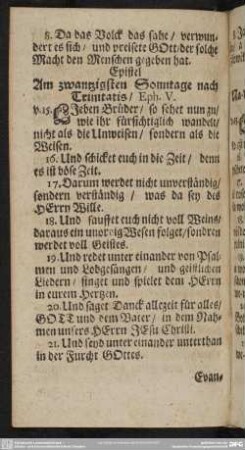 8. Da das Volck das sahe / verwun-
dert es sich / und preisete GOtt / der solche
Macht den Menschen gegeben hat.
Epistel
Am zwantzigsten Sonntage nach
Trinitatis / Eph. V.
v.15. Lieben Brüder / so sehet nun zu /
wie ihr fürsichtiglich wandelt /
nicht als die Unweisen / sondern als die
Weisen.
16. Und schicket euch in die Zeit / denn
es ist böse Zeit.
17. Darum werdet nicht unverständig /
sondern verständig / was da sey des
HErrn Wille.
18. Und sauffet euch nicht voll Weins /
daraus ein unorrig Wesen folget / sondren
werdet voll Geistes.
19. Und redet unter einander von Psal-
men und Lobgesängen / und geistlichen
Liedern / singet und spielet dem HErrn
in eurem Hertzen.
20. Und saget Danck allezeit für alles /
GOTT und dem Vater / in dem Nah-
men unsers HErrn JEsu Christi.
21. Und seyd unter einander unterthan
in der Furcht GOttes.
Evan-